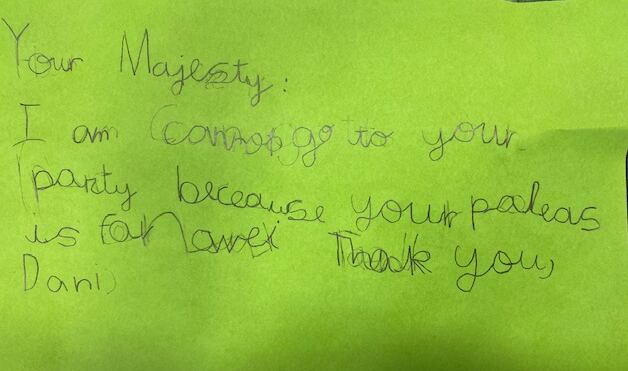 Your Majesty:
I am cannot go to your
party because your paleas
is far awei Thank you,
Dani